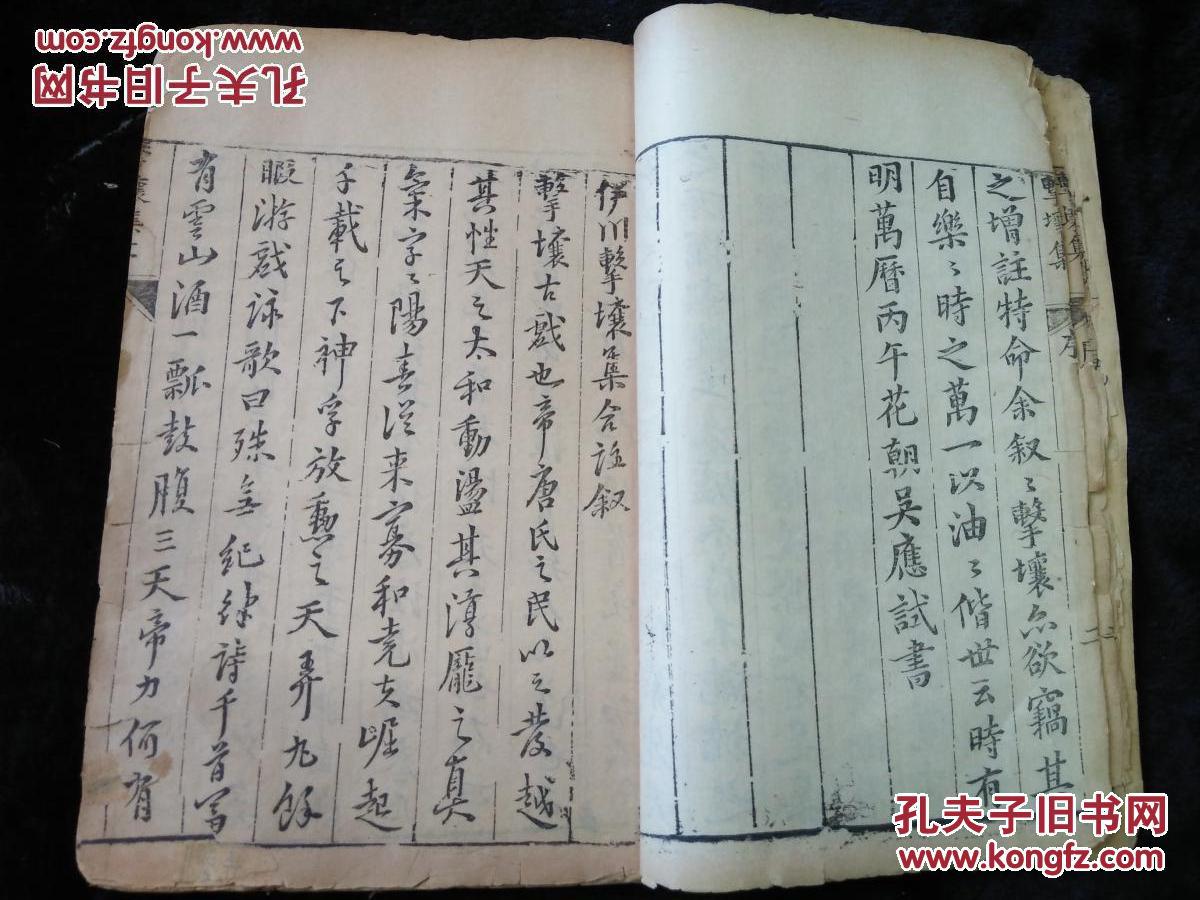 擊壤集 序
之增註特命余叙〻擊壤亦欲竊其
自樂〻時之萬一以油〻偕世云時有
明萬曆丙午花朝吳應試書
二
伊川擊壤集合註叙
擊壤古戲也帝唐氏之民以之發越
其性天之太和動盪其淳龐之真
宇〻陽春從来寡和堯夫崛起
千載之下神孚放勲之天弄九餘
暇游戲詠歌曰殊無紀律詩千首富
有雲山酒一瓢鼓腹三天帝力何有
孔夫子旧书网
www.kongfz.com
孔夫子旧书网
www.kongfz.com